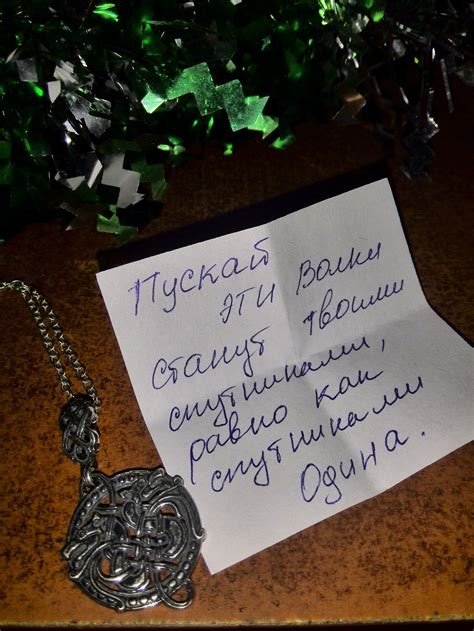 Пускай
эти Волки
станут твоими
спутниками,
равно как
спутниками
Одина.